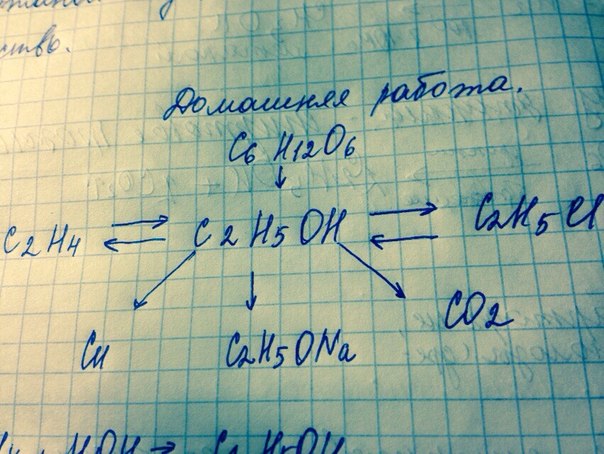 ство.
Домашняя работа.
C6 H12O6
↓
C2H4 ⇄ C2H5OH ⇄ C2H5Cl
Cu C2H5ONa CO2
HOH →